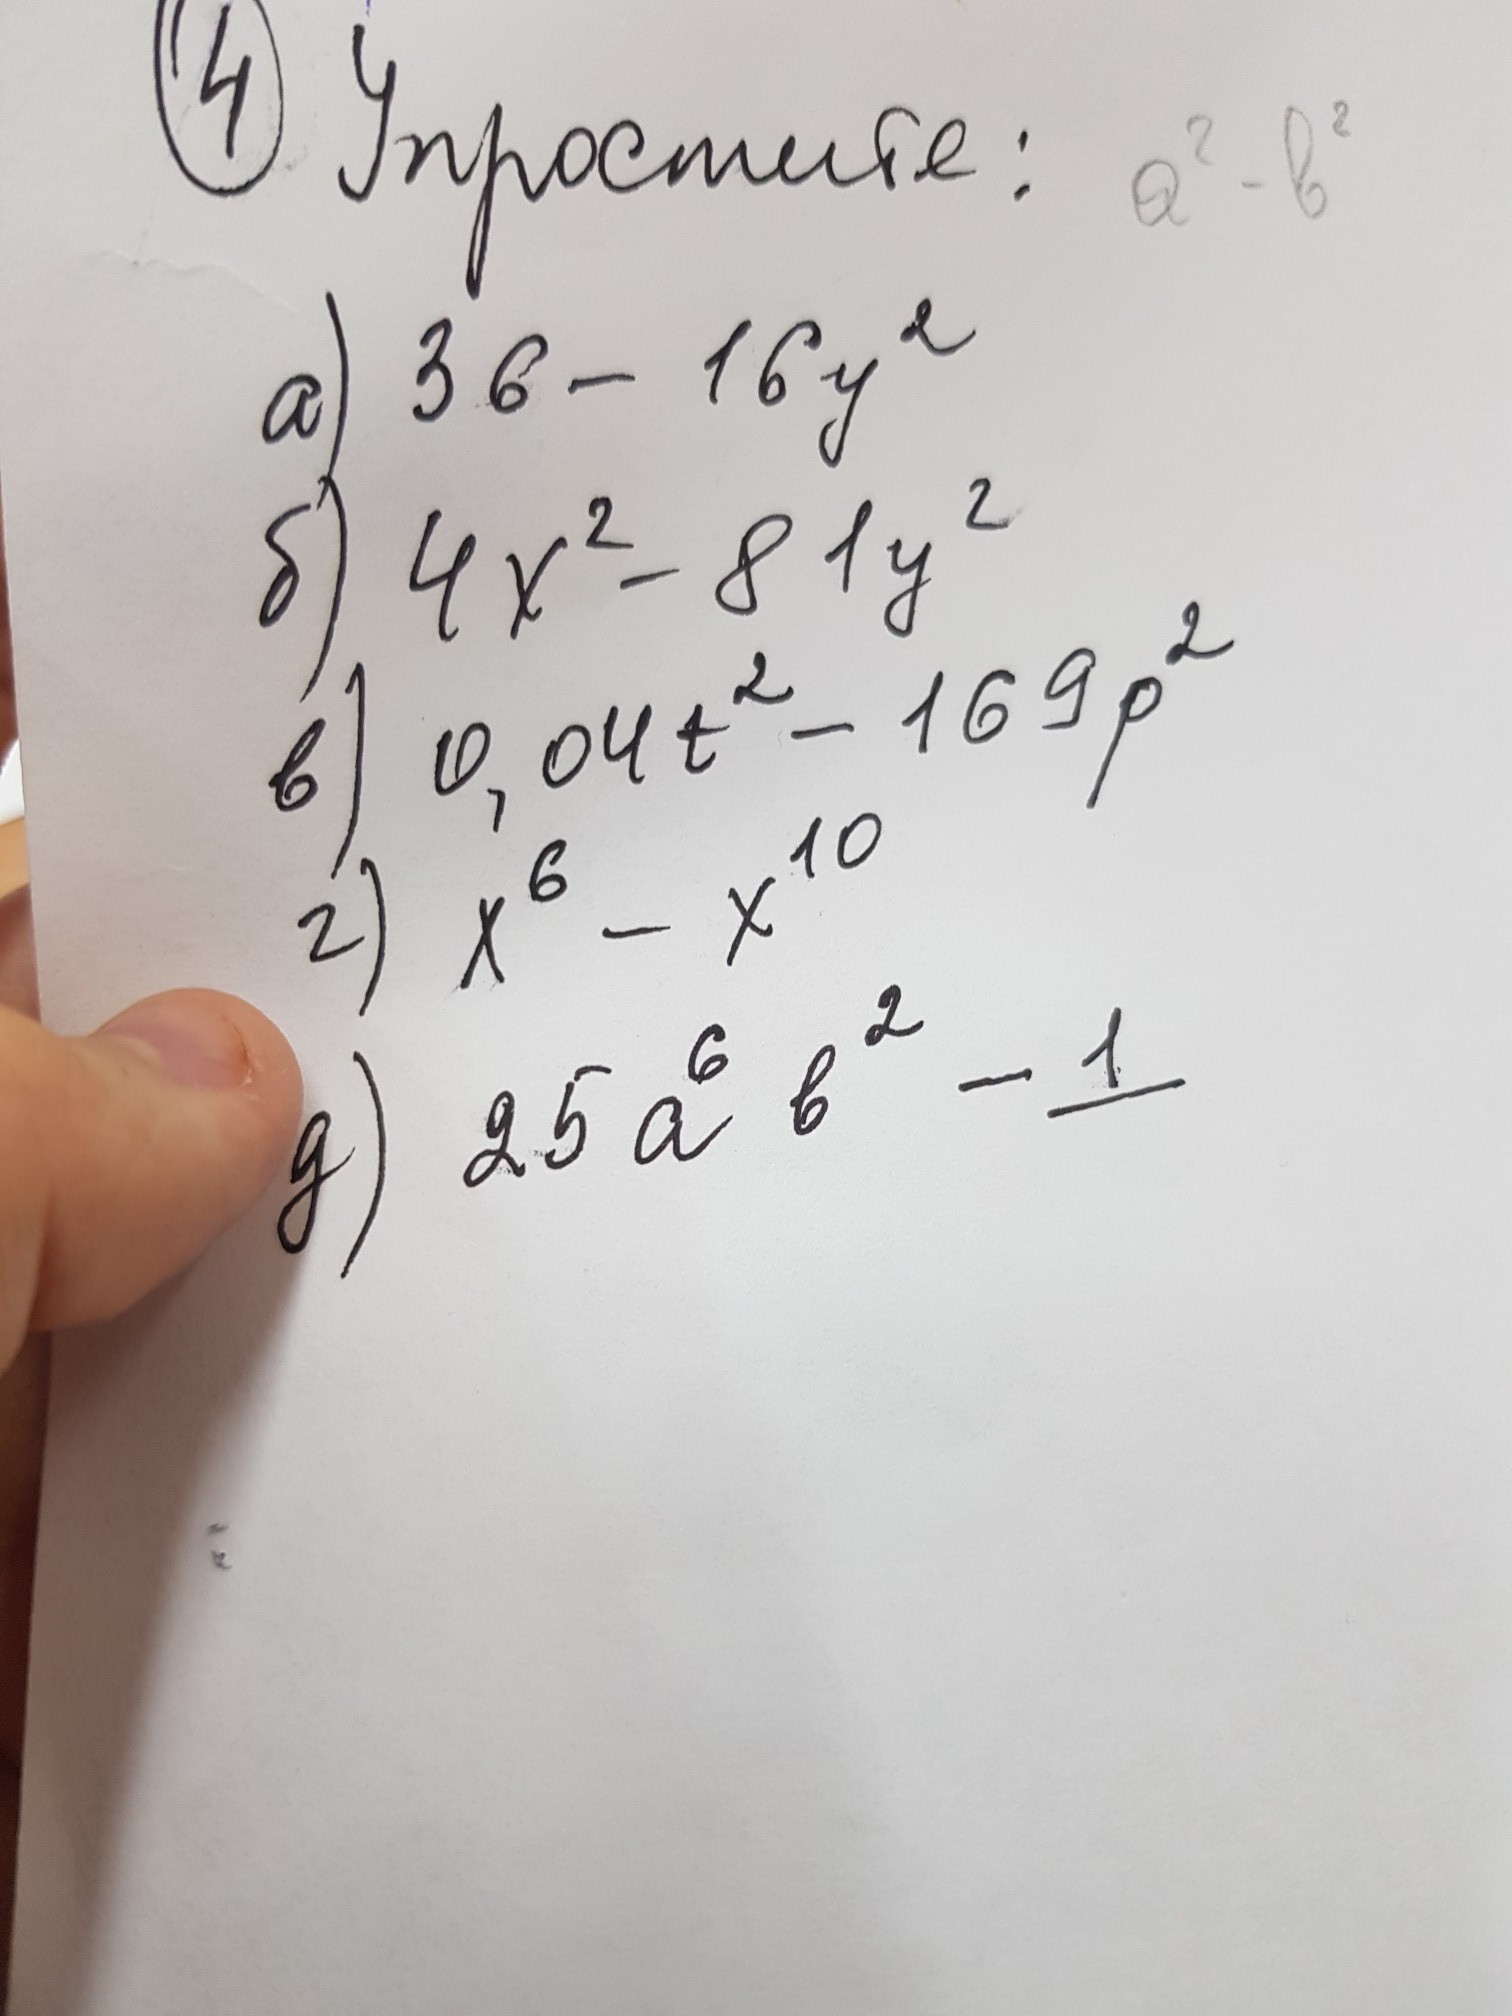 4 Упростите: a² - b²
а) 36 - 16y²
б) 4x² - 81y²
в) 0,04t² - 169p²
г) x⁶ - x¹⁰
д) 25a⁶b² - 1